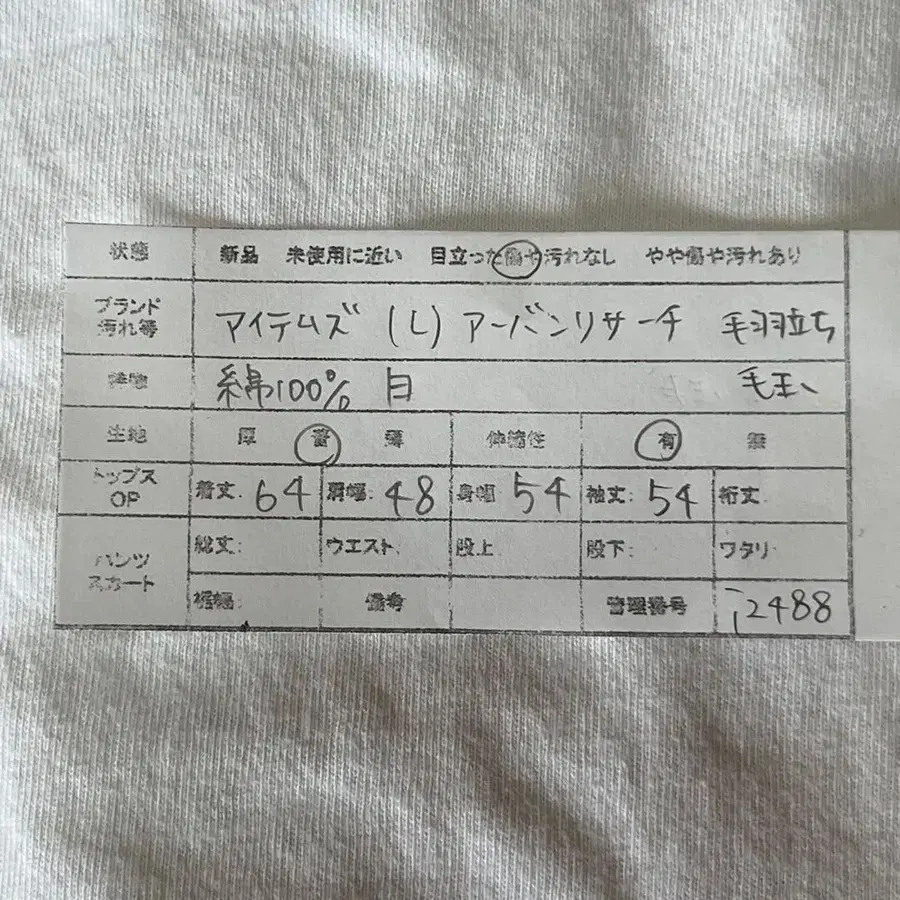 状態 新品 未使用に近い 目立った傷や汚れなし やや傷や汚れあり
ブランド 汚れ等 アイテムズ (L) アーバンリサーチ 毛羽立ち
綿100% 白 毛玉
生地 厚 普 薄 伸縮性 有 無
トップス OP 着丈: 64 肩幅: 48 身幅: 54 袖丈: 54 裄丈:
パンツ スカート 総丈: ウエスト: 股上 股下: ワタリ
裾幅: 備考 管理番号 i2488